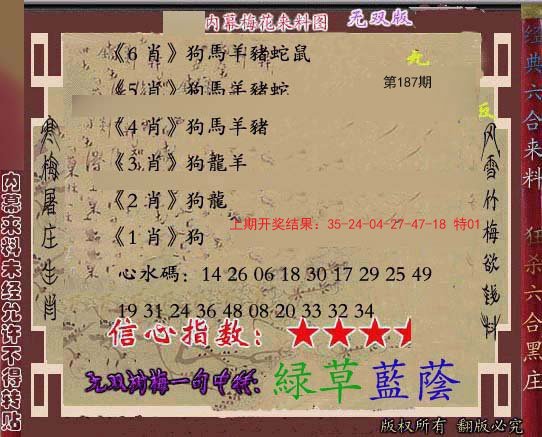 内幕梅花来料图 无双版
《6 肖》狗馬羊豬蛇鼠
第187期
《5 肖》狗馬羊豬蛇
《4 肖》狗馬羊豬
《3 肖》狗龍羊
《2 肖》狗龍
上期开奖结果：35-24-04-27-47-18 特01
《1 肖》狗
心水碼：14 26 06 18 30 17 29 25 49
19 31 24 36 48 08 20 33 32 34
信心指数：
无双狗梅一句中特：綠草藍蔭
版权所有 翻版必究
内幕来料未经允许不得转贴
寒梅屠庄生肖
风雪竹梅欲钱料
经典六合来料
狂杀六合黑庄